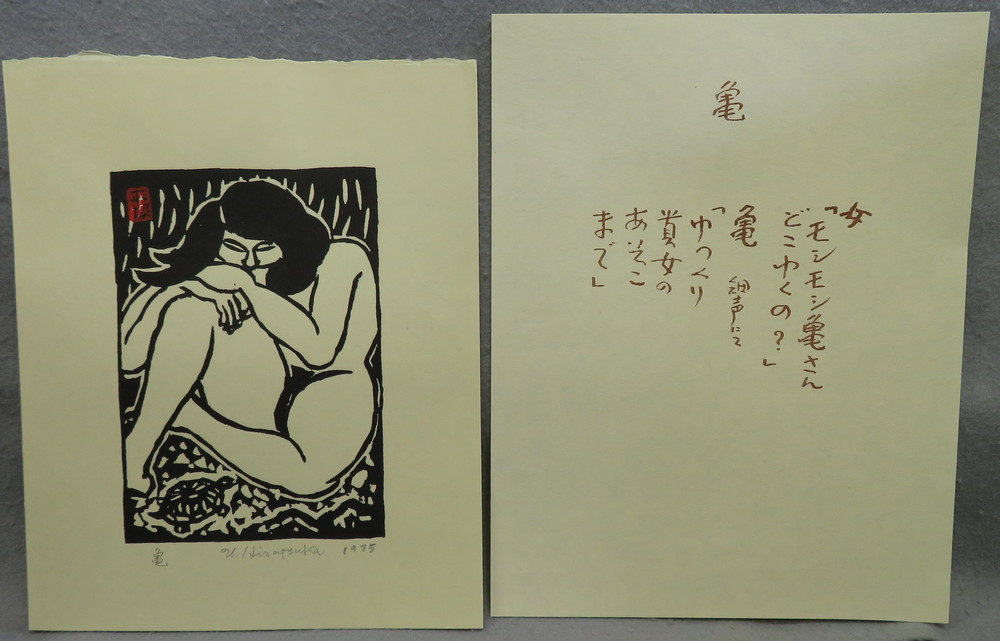 亀
U. Hiratsuka 1975
亀
女
「モシモシ亀さん
どこゆくの？」
亀 細声にて
「ゆっくり
貴女の
あそこ
まで」